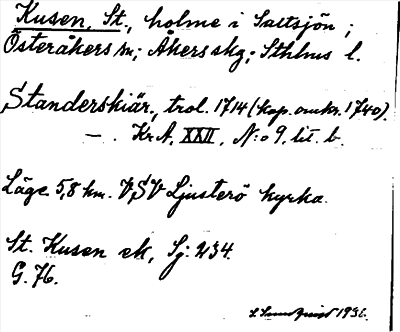 Kusen, St., holme i Saltsjön;
Österåkers sn; Åkers skg; Sthlms l.
Standerskiär, trol. 1714 (kop. omkr. 1740).
— . Kr A, XXII, N:o 9, lit. b.
Läge 5,8 km. VSV Ljusterö kyrka.
St. Kusen ek, Sj. 234.
G. 76.
S. Lundquist 1936.